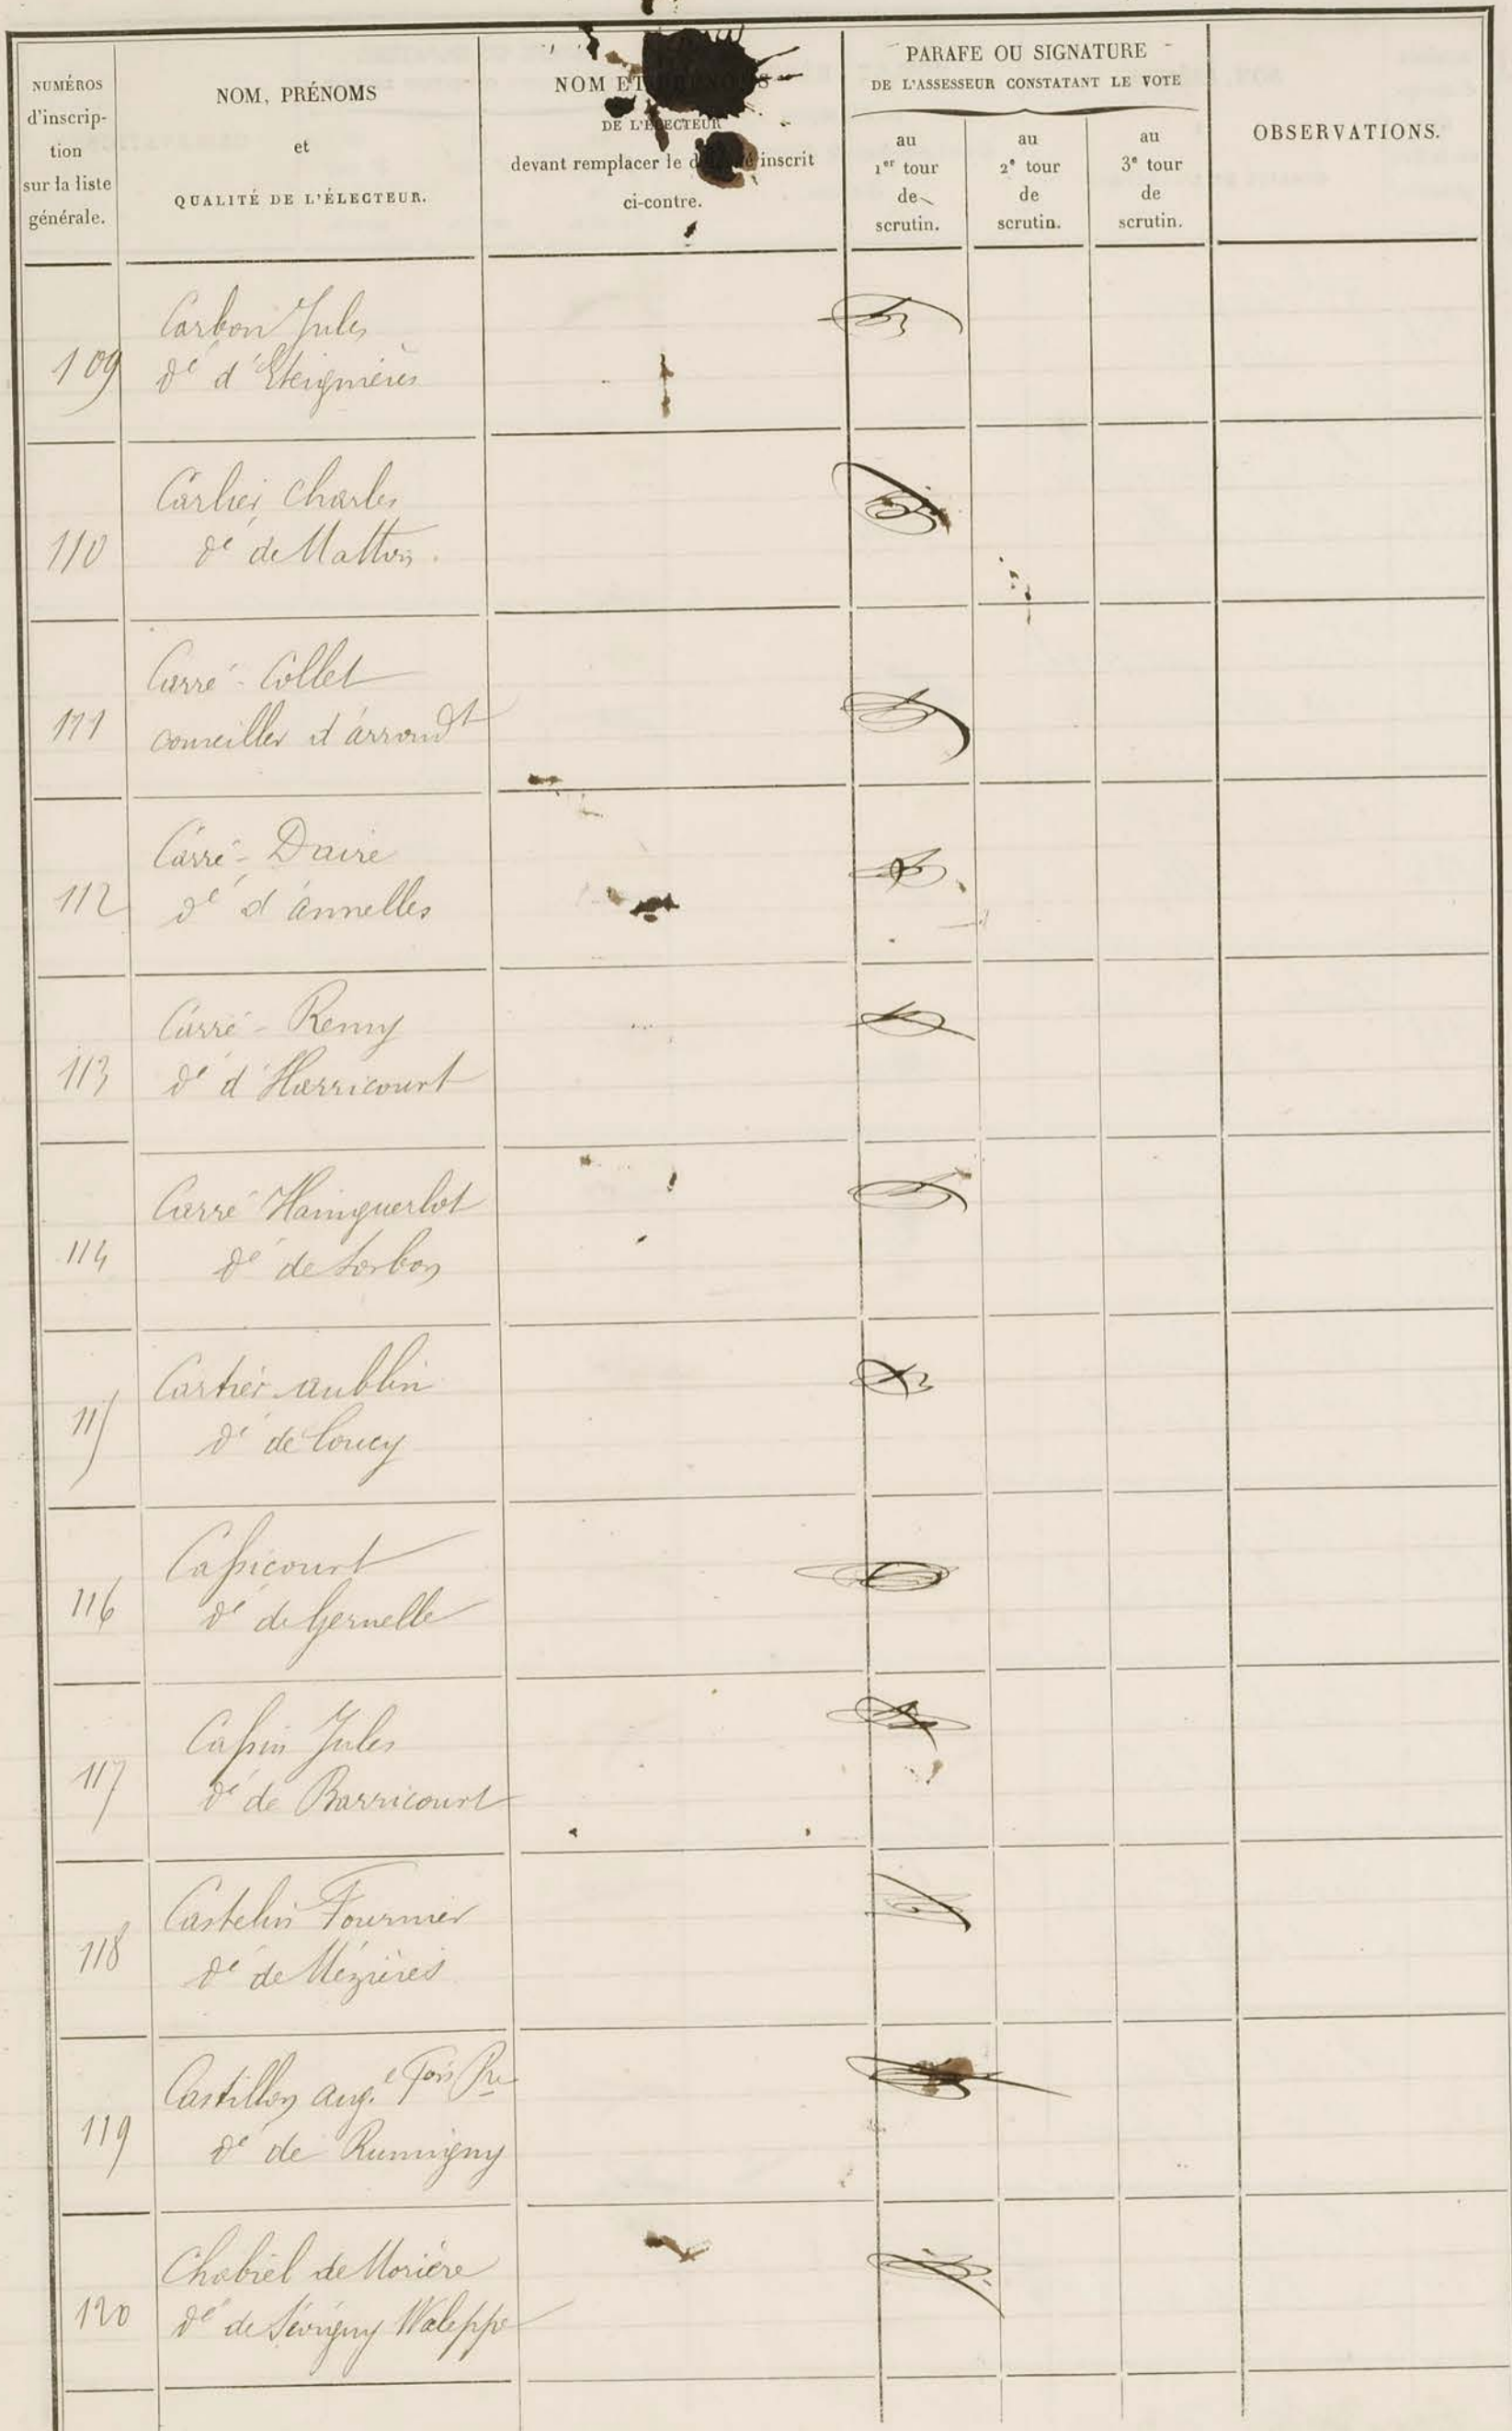 NUMÉROS
d'inscrip-
tion
sur la liste
générale.
NOM, PRÉNOMS
et
QUALITÉ DE L'ÉLECTEUR.
NOM ET
DE L'ÉLECTEUR
devant remplacer le inscrit
ci-contre.
PARAFE OU SIGNATURE
DE L'ASSESSEUR CONSTATANT LE VOTE
au
1er tour
de
scrutin.
au
2e tour
de
scrutin.
au
3e tour
de
scrutin.
OBSERVATIONS.
109
Carbon Jules
dé d'Eteignières
110
Carlier Charles
dé de Matton
111
Carré-Collet
conseiller d'arrondt
112
Carré-Daire
dé d'annelles
113
Carré-Remy
dé d'Harricourt
114
Carré Hainguerlot
dé de Sorbon
115
Cartier-aublin
dé de Coucy
116
Cassicourt
dé de Gernelle
117
Cassin Jules
dé de Barricourt
118
Castelin Fournier
dé de Mézières
119
Castillon aug.e Fois Pre
dé de Rumigny
120
Chabriel de Morière
dé de Sévigny Waleppe